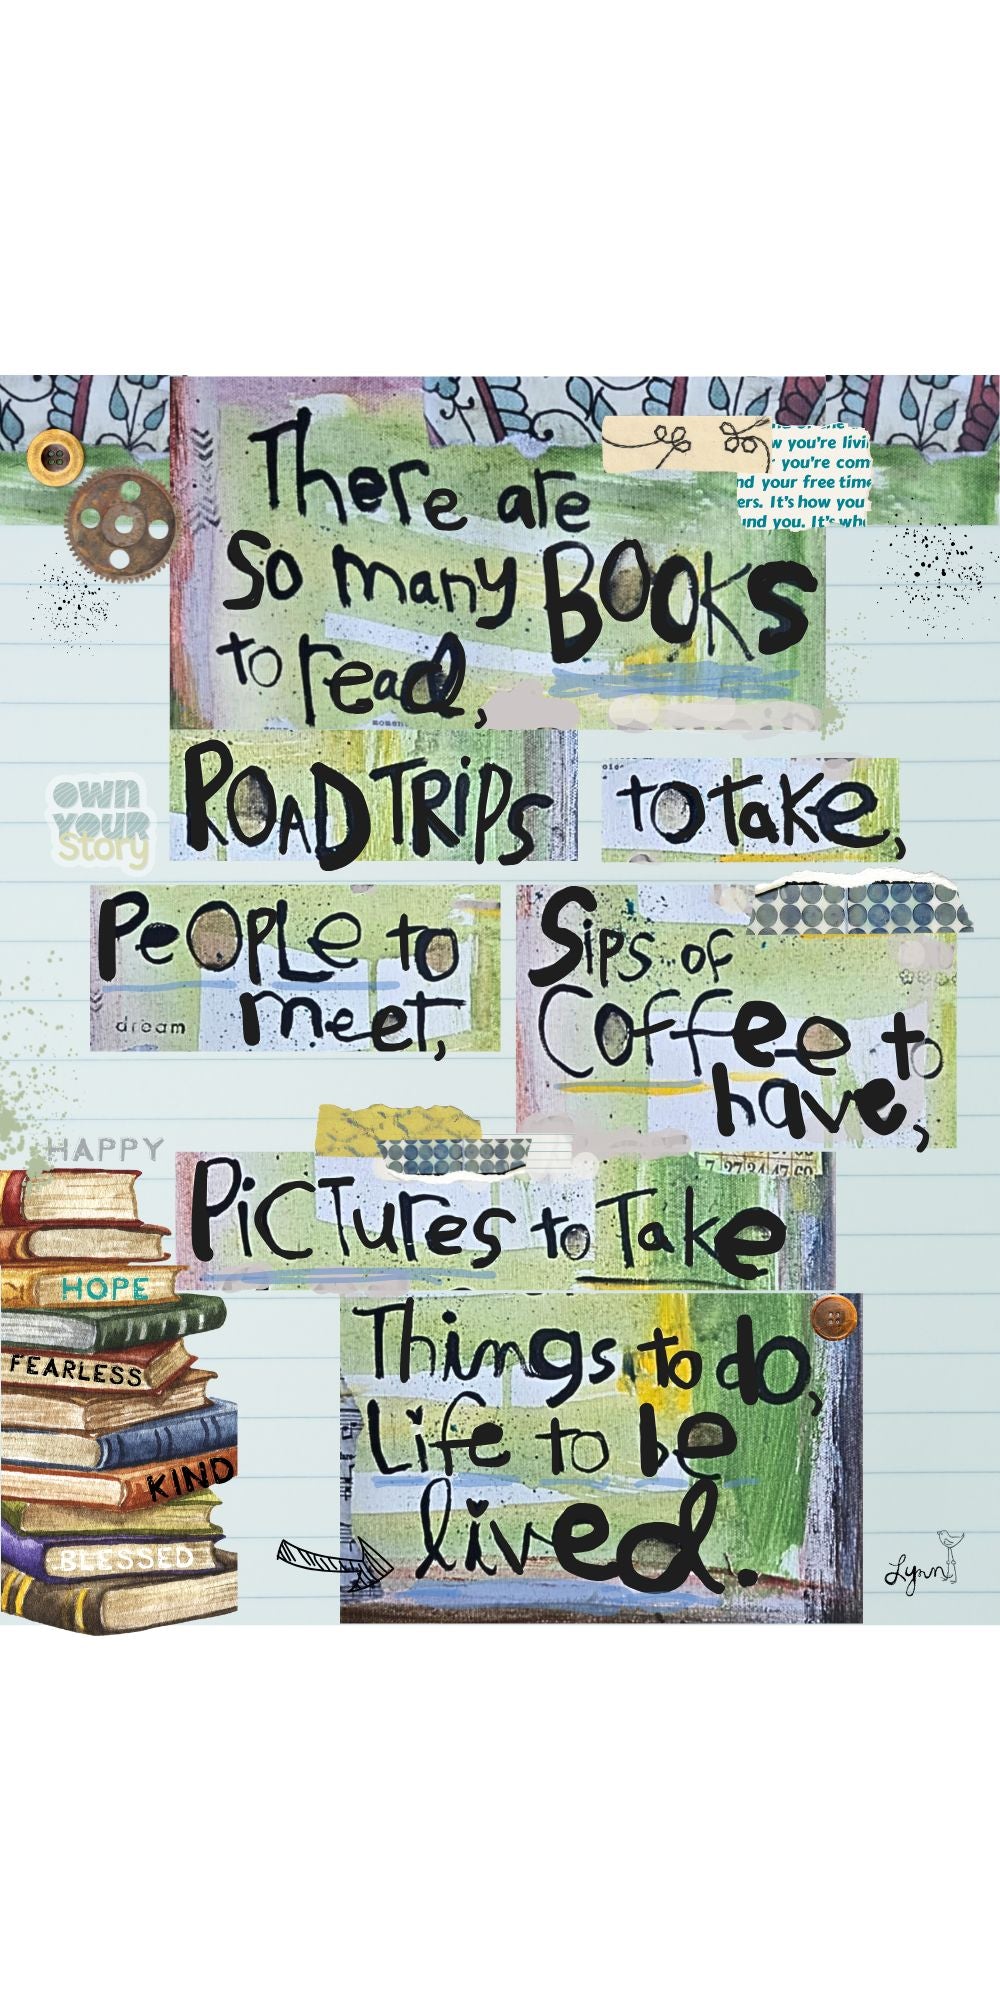 There are
so many BOOKS
to read,
w you're livi
you're com
nd your free time
ers. It's how you
und you. It's wh
ROAD TRIPS to take,
OWN
YOUR
Story
PeOPLe to
meet,
dream
Sips of
Coffee to
have,
HAPPY
PiCTures to Take
HOPE
FEARLESS
KIND
BLESSED
Things to do,
Life to be
lived.
Lynn